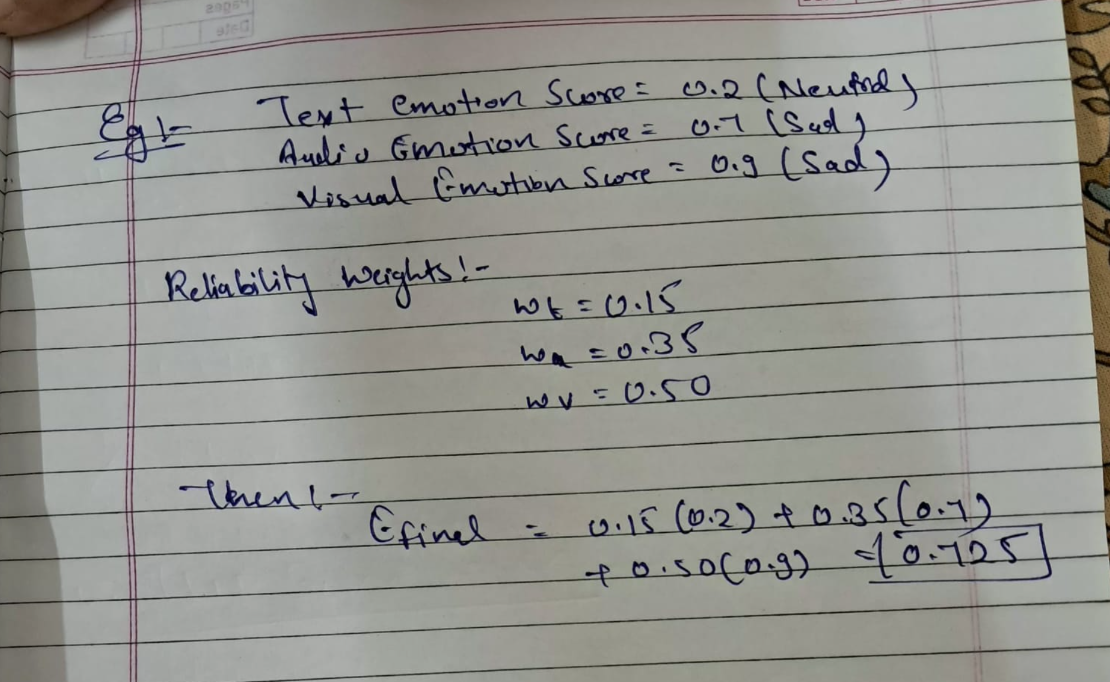 Pages
Date
Eg!- Text emotion Score = 0.2 (Neutral)
Audio Emotion Score = 0.7 (Sad)
Visual Emotion Score = 0.9 (Sad)
Reliability weights!-
wt = 0.15
wa = 0.35
wv = 0.50
Then!-
Efinal = 0.15 (0.2) + 0.35 (0.7)
+ 0.50 (0.9) = 0.725